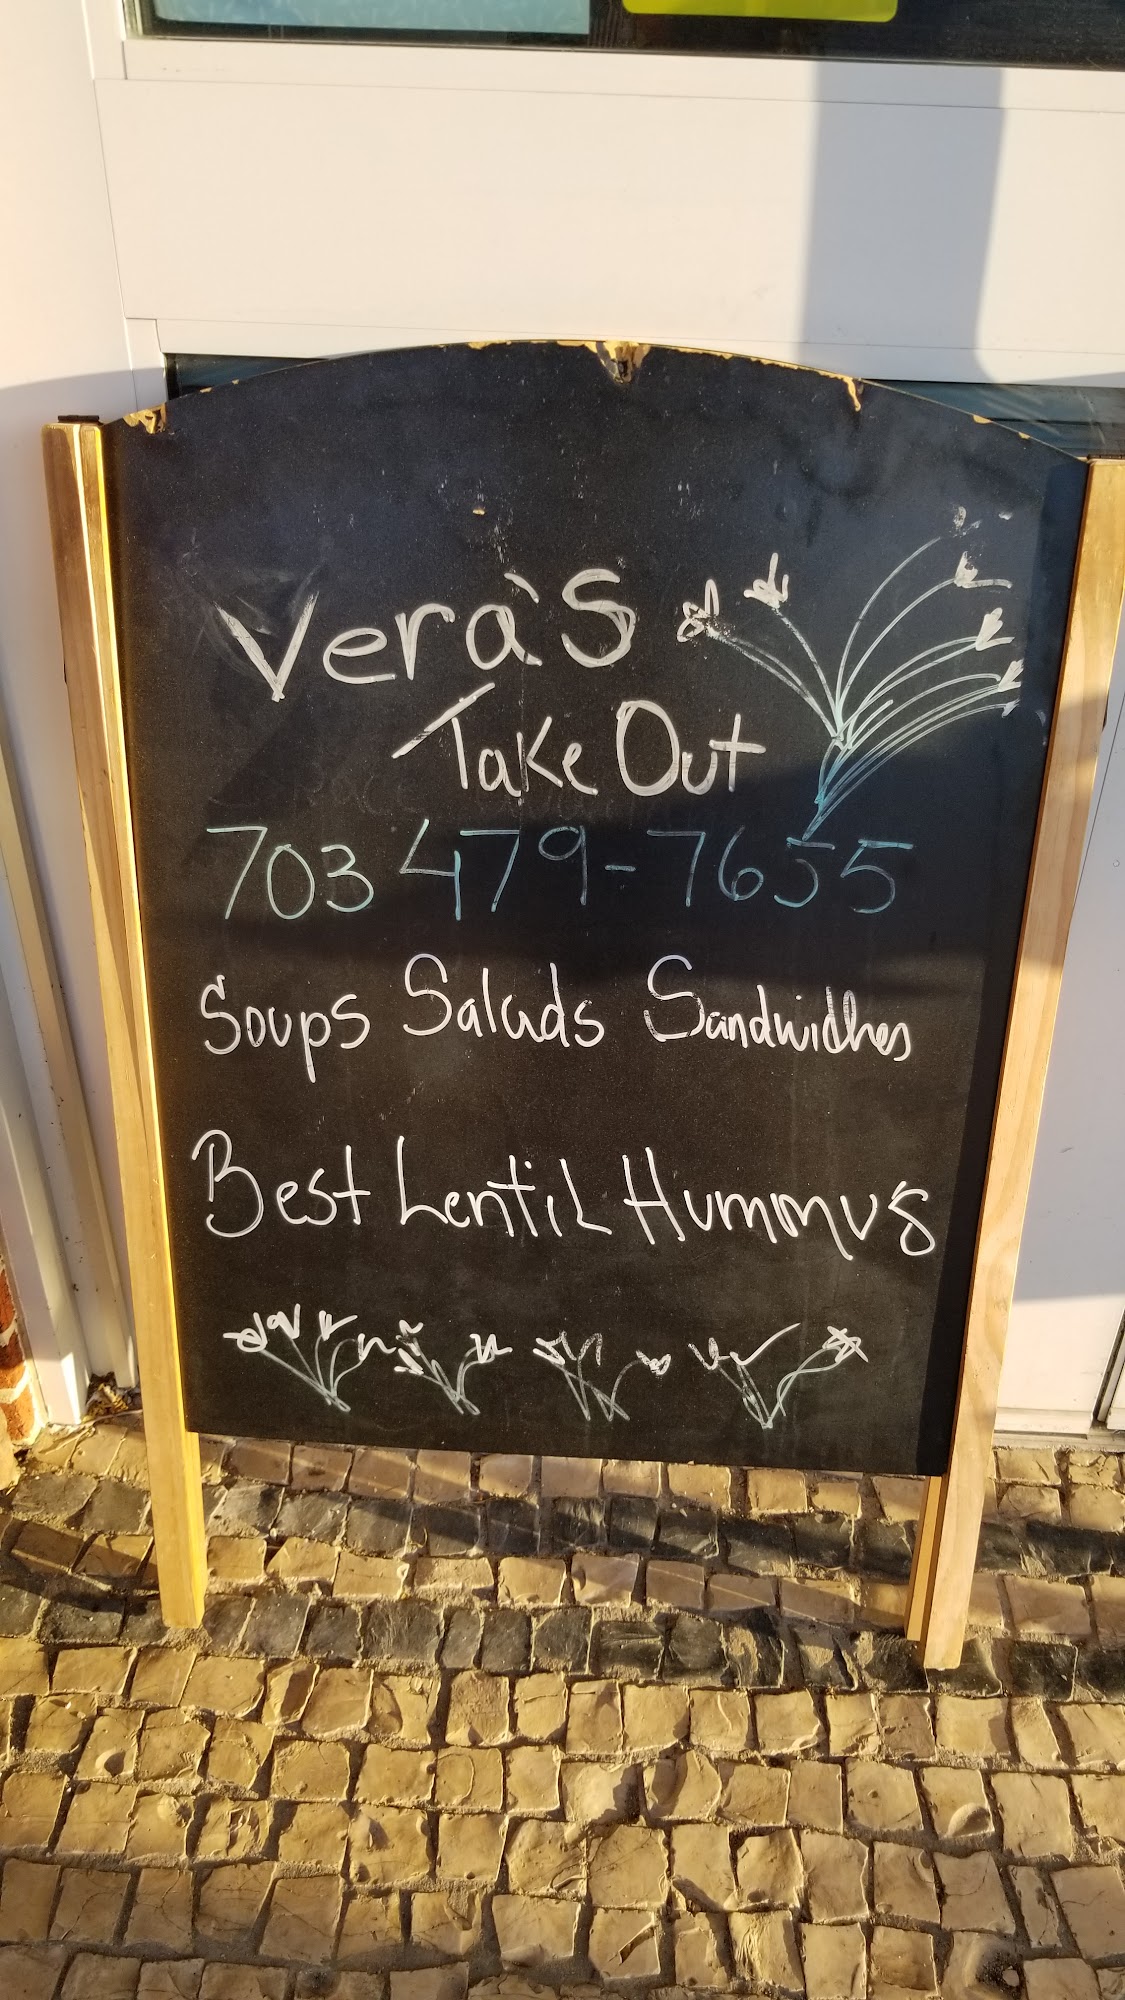 Vera's
Take Out
703 479-7655
Soups Salads Sandwidhes
Best Lentil Hummus